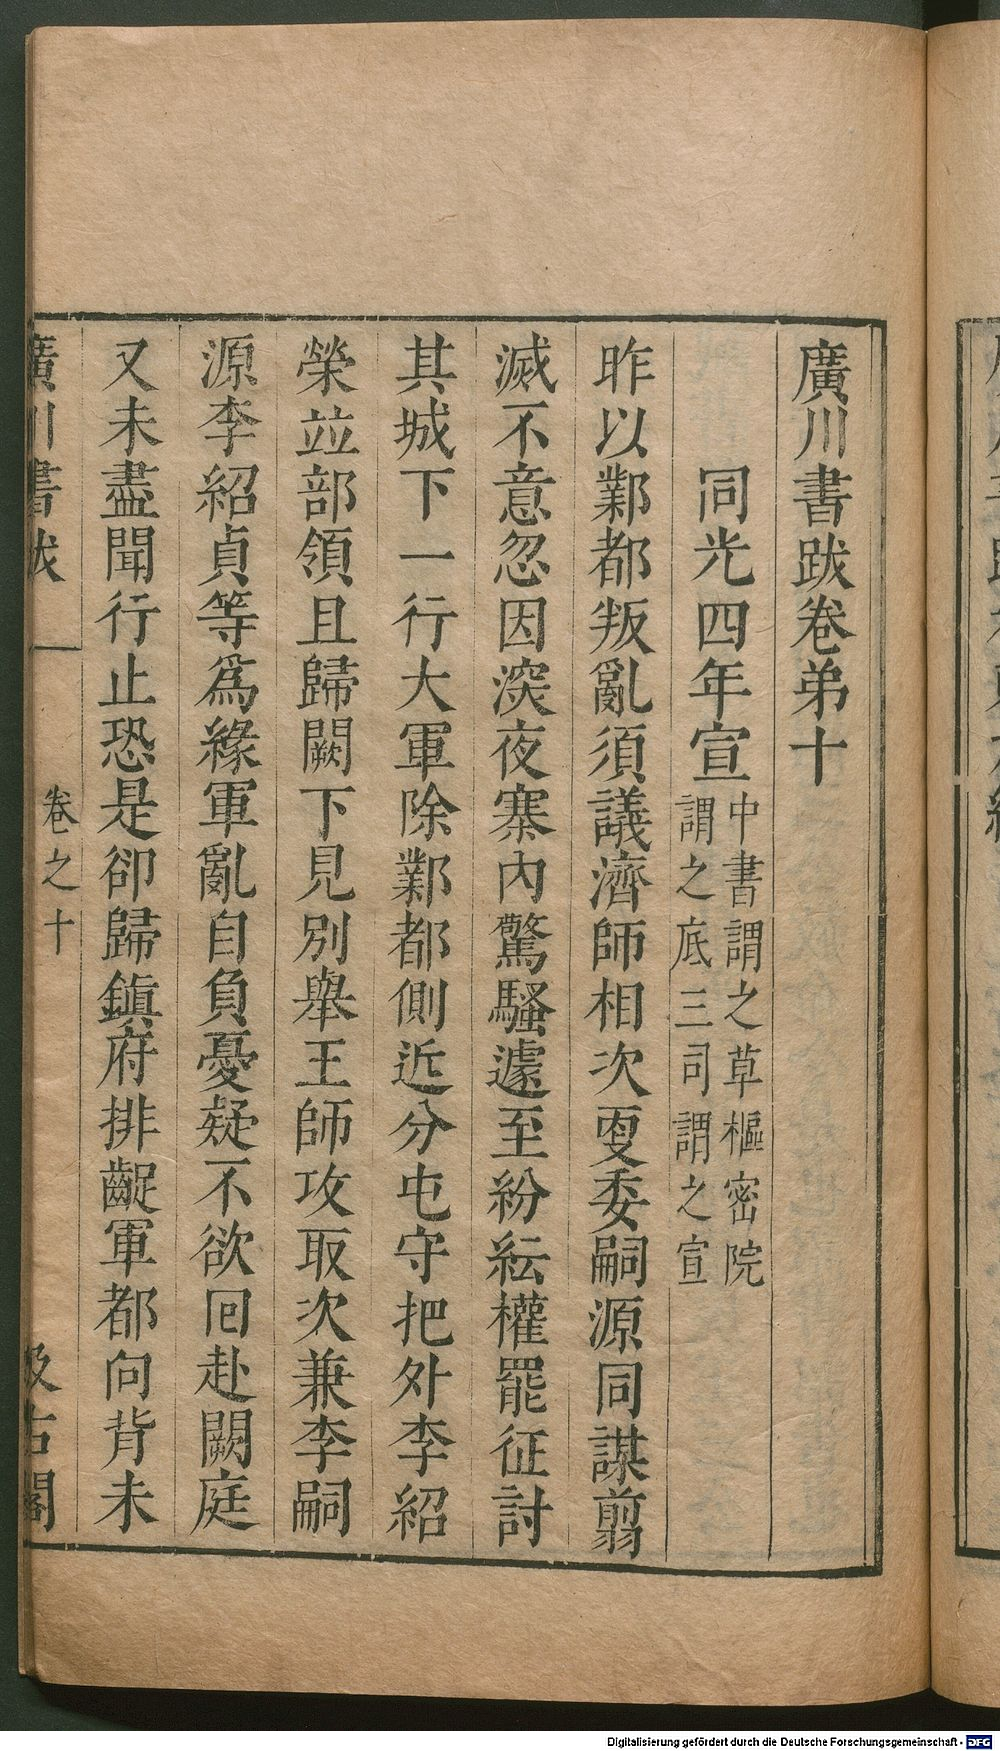 廣川書跋卷弟十
同光四年宣
中書謂之草樞密院
謂之底三司謂之宣
昨以鄴都叛亂須議濟師相次叓委嗣源同謀翦
滅不意忽因深夜寨內驚騷遽至紛紜權罷征討
其城下一行大軍除鄴都側近分屯守把外李紹
榮竝部領且歸闕下見別舉王師攻取次兼李嗣
源李紹貞等爲緣軍亂自負憂疑不欲回赴闕庭
又未盡聞行止恐是卻歸鎭府排齪軍都向背未
廣川書跋 一 卷之十 汲古閣
Digitalisierung gefördert durch die Deutsche Forschungsgemeinschaft - DFG